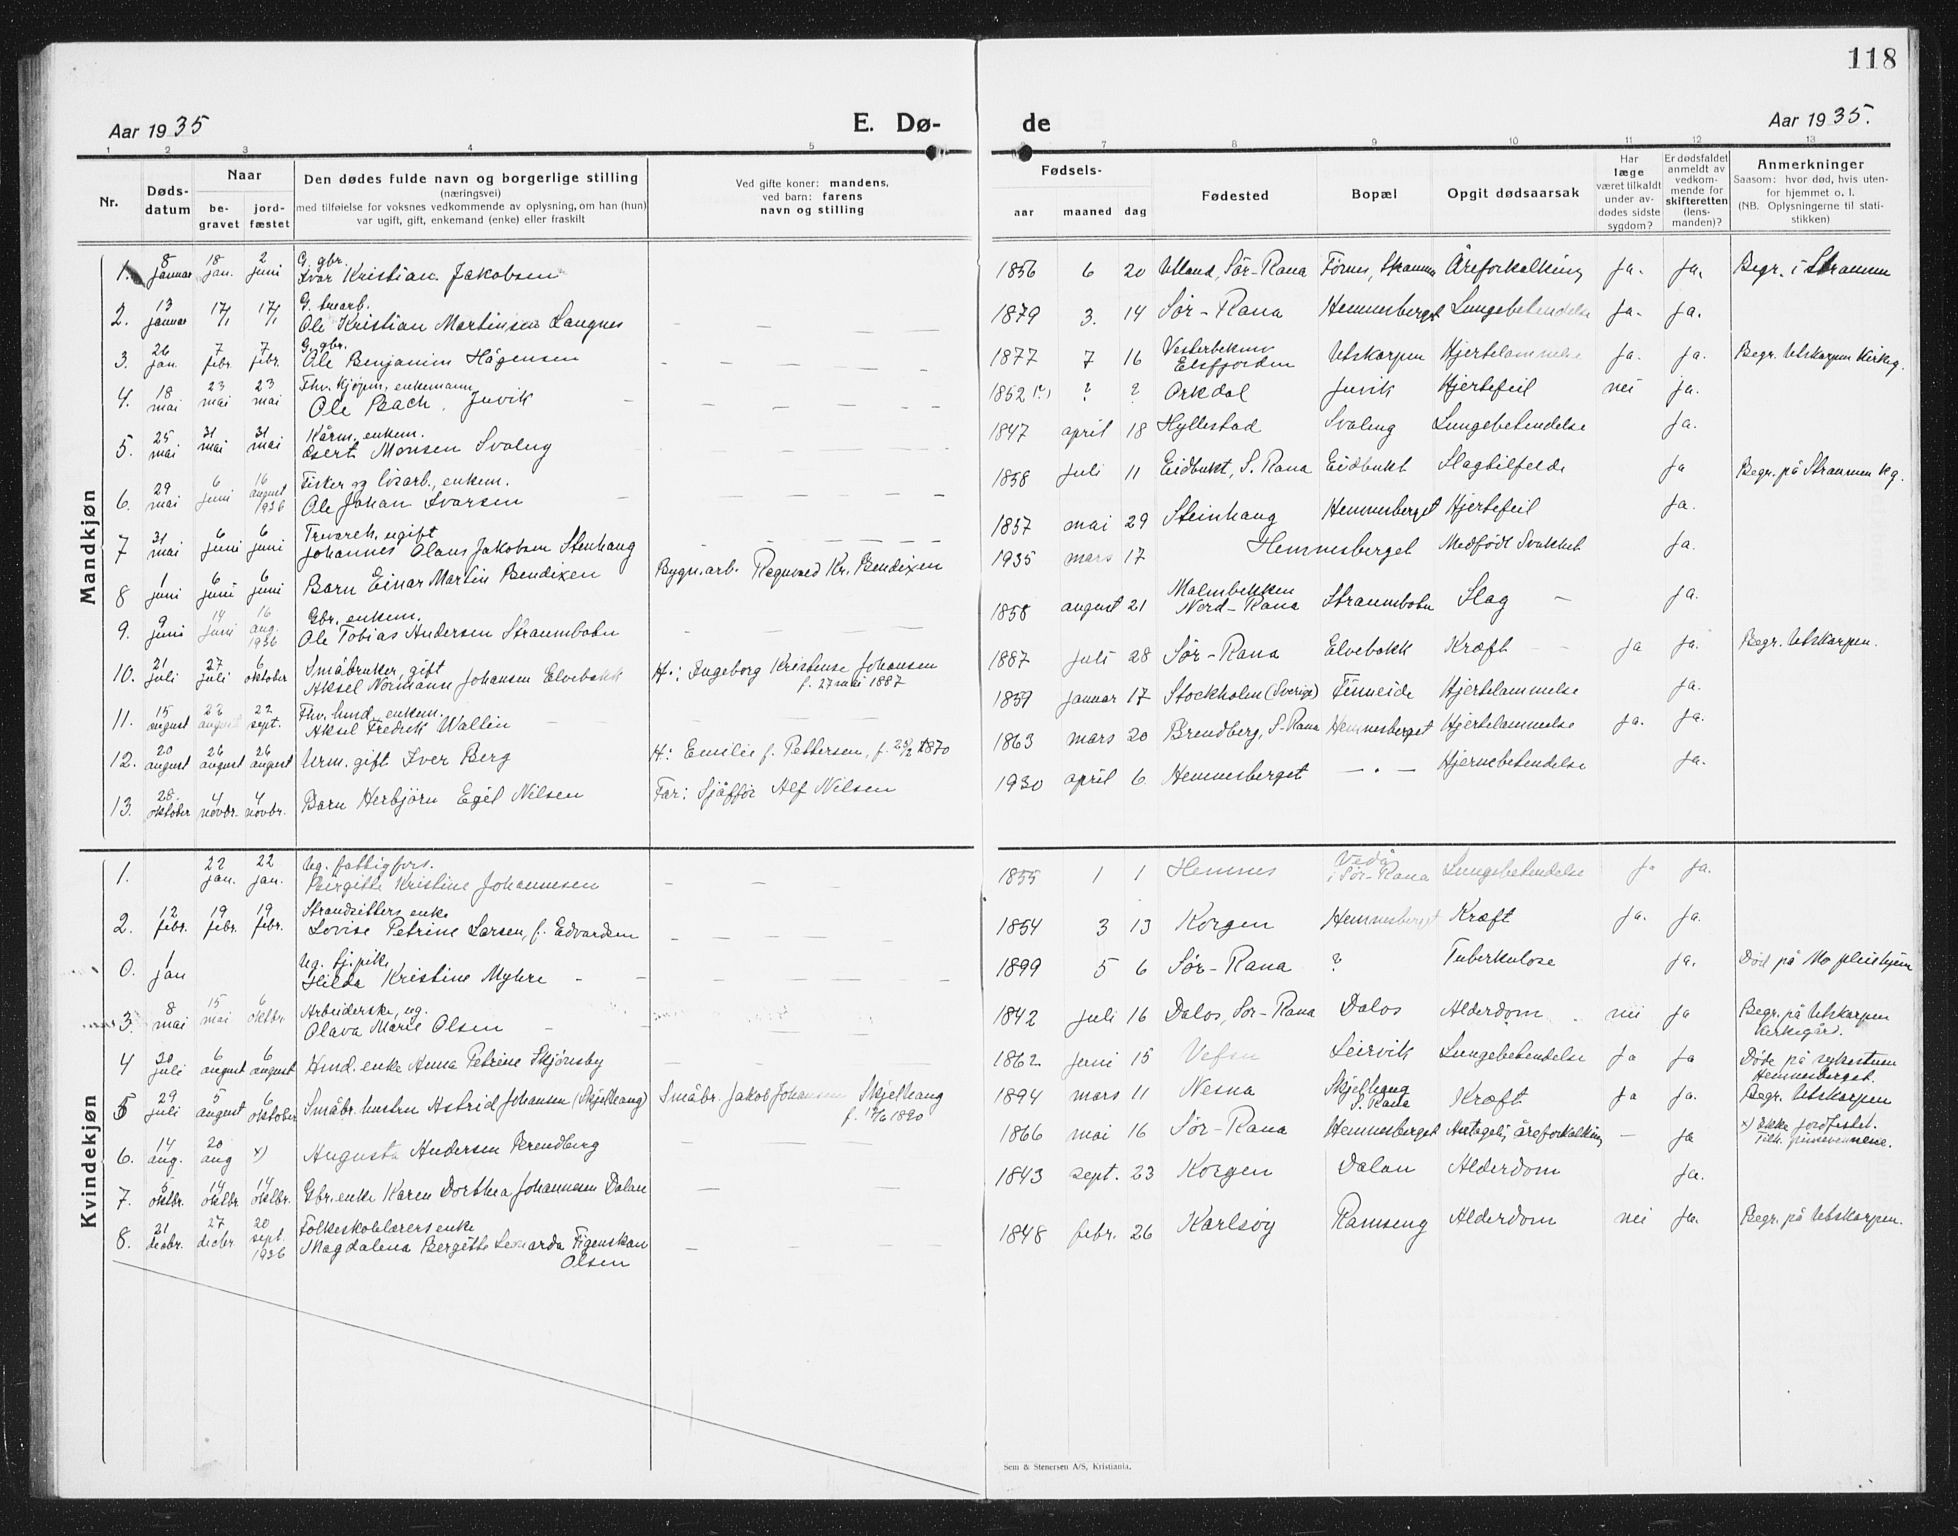 118
Aar 1935
E. Dø-
de
Aar 1935.
1 2 3 4 5 7 8 9 10 11 12 13
Nr.
Døds-
datum
Naar
be-
gravet
jord-
fæstet
Den dødes fulde navn og borgerlige stilling
(næringsvei)
med tilføielse for voksnes vedkommende av oplysning, om han (hun)
var ugift, gift, enkemand (enke) eller fraskilt
Ved gifte koner: mandens,
ved barn: farens
navn og stilling
Fødsels-
aar maaned dag
Fødested
Bopæl
Opgit dødsaarsak
Har
læge
været tilkaldt
under av-
dødes sidste
sygdom?
Er dødsfaldet
anmeldt av
vedkom-
mende for
skifteretten
(lens-
manden)?
Anmerkninger
Saasom: hvor død, hvis uten-
for hjemmet o. l.
(NB. Oplysningerne til stati-
stikken)
Mandkjøn
1. 8 januar 18 jan. 2 juni G. gbr.
Ivar Kristian Jakobsen 1856 6 20 Utland, Sør-Rana Førnes, Straumen Åreforkalkning ja. ja. Begr. i Straumen
2. 13 januar 17/1 17/1
Ole Kristian Martinsen Langnes 1879 3. 14 Sør-Rana Hemnesberget Lungebetendelse ja. ja.
3. 26 jan. 7 febr. 7 febr. G. gbr.
Ole Benjamin Hågensen 1877 7 16 Elsfjorden Utskarpen Hjertelammelse ja. ja. Begr. Utskarpen kirkg.
4. 18 mai 23 mai 23 mai Fhv. kjøpm., enkemann
Ole Bach, Juvik 1852 (?) ? ? Orkdal Juvik Hjertefeil nei ja.
5. 25 mai 31 mai 31 mai Kårm. enkem.
Monsen Svaleng 1847 april 18 Hyllestad Svaleng Lungebetendelse ja.
6. 29 mai 6 juni 16 august 1936 Fisker og løsarb., enkem.
Ole Johan Ivarsen 1858 juli 11 Eidbukt, S. Rana Eidbukt Slagtilfelde ja Begr. på Straumen kg.
7 31 mai 6 juni 6 juni ugift
Johannes Olaus Jakobsen Stenhaug 1857 mai 29 Steinhaug Hemnesberget Hjertefeil ja.
8 1 juni 6 juni 6 juni Barn Einar Martin Bendixen Bygn.arb. Ragnvald Kr. Bendixen 1935 mars 17 Hemnesberget Medfødt Svakhet ja.
9. 9 juni 14 juni 16 aug. 1936 Gbr. enkem.
Ole Tobias Andersen Straumbotn 1858 august 21 Malmbekken
Nord-Rana Straumbotn Slag ja.
10. 21 juli 27 juli 6 oktober Småbruker, gift
Aksel Normann Johansen Elvebakk H.: Ingeborg Kristense Johansen
f. 27 mai 1887 1887 juli 28 Sør-Rana Elvebakk Kræft ja ja. Begr. Utskarpen.
11. 15 august 22 august 22 sept. Fhv. hmd., enkem.
Aksel Fredrik Wallin 1859 januar 17 Stockholm (Sverige) Finneide Hjertelammelse ja.
12. 20 august 26 august 26 august Urm. gift Iver Berg H: Emilie f. Pettersen, f. 25/2 1870 1863 mars 20 Brendberg, S-Rana Hemnesberget Hjertelammelse ja. ja.
13. 28. oktober 4 novbr. 4 novbr. Barn Herbjørn Egil Nilsen Far: Sjåffør Alf Nilsen 1930 april 6. Hemnesberget — „ — Hjernebetendelse ja.
Kvindekjøn
1. 22 jan. 22 jan. Ug. fattigfors.
Bergitte Kristine Johannesen 1855 1 1 Hemnes
i Sør-Rana Lungebetendelse ja ja.
2. 12 febr. 19 febr. 19 febr. Strandsitters enke
Lovise Petrine Larsen, f. Edvardsen 1854 3 13 Korgen Hemnesberget Kræft ja. ja.
0. 1 jan Ug. tj.pike
Hilda Kristine Myhre 1899 5 6 Sør-Rana ? Tuberkulose ja. Død på Mo pleiehjem
3. 8 mai 15 mai 6 oktbr Arbeiderske, ug.
Olava Marie Olsen 1842 juli 16 Dalos, Sør-Rana Dalos Alderdom nei ja Begr. på Utskarpen
kirkegård.
4 20 juli 6 august 6 august Hmd. enke Anna Petrine Skjønsby 1862 juni 15 Vefsn Leirvik Lungebetendelse ja ja Døde på sykestuen
Hemnesberget.
5 29 juli 5 august 6 oktober Småbr. hustru Astrid Johansen (Skjelhaug) Småbr. Jakob Johansen Skjelhaug
f. 17/6 1890 1894 mars 11 Nesna Skjelhaug
S. Rana Kræft ja ja. Begr. Utskarpen
6. 14 aug. 20 aug x) Augusta Andersen Brendberg 1866 mai 16 Sør-Rana Hemnesberget Antagelig åreforkalkning — ja x) Ikke jordfestet.
Tilh. pinsevennene.
7. 5 oktbr. 14 oktbr. 14 oktbr. Gbr. enke Karen Dorthea Johannesen Dalan 1843 sept. 23 Korgen Dalan Alderdom ja.
8. 21 decbr. 27 decbr 20 sept. 1936 Folkeskolelærers enke
Magdalena Bergitte Leonarda Figenskau
Olsen 1848 febr. 26 Karlsøy Ramseng Alderdom nei ja. Begr. på Utskarpen.
Sem & Stenersen A/S, Kristiania.